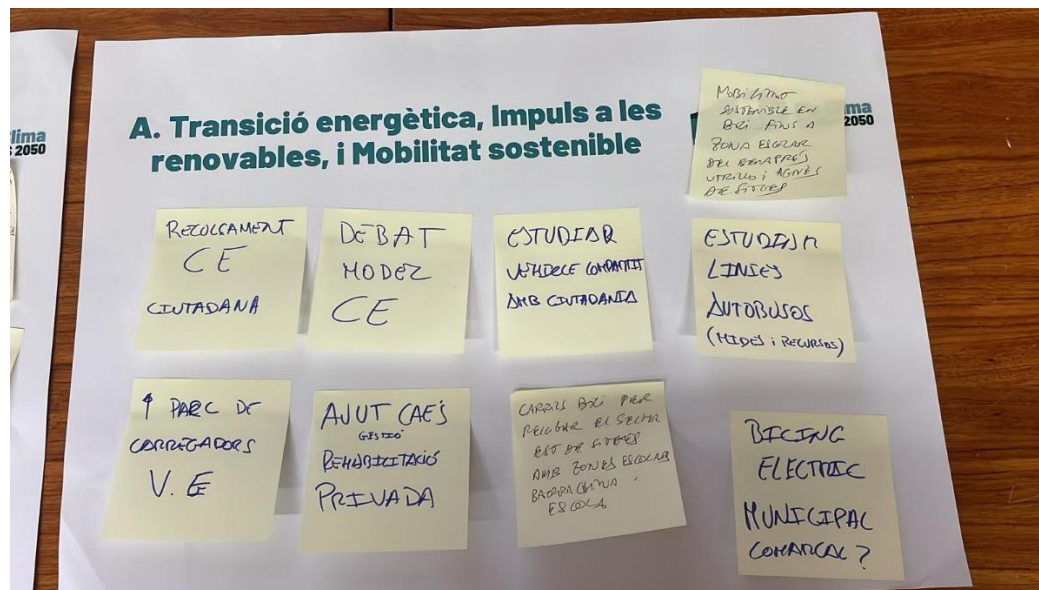 lima
2050
A. Transició energètica, Impuls a les
renovables, i Mobilitat sostenible
ima
2050
MOBILITAT
SOSTENIBLE EN
BICI FINS A
ZONA ESCOLAR
DEL
UTRILLO i AGNÈS
DE SITGES
RECOLÇAMENT
CE
CIUTADANA
DEBAT
MODEL
CE
ESTUDIAR
VEHICLE COMPARTIT
AMB CIUTADANIA
ESTUDIAR
LINIES
AUTOBUSOS
(MIDES i RECURSOS)
↑ PARC DE
CARREGADORS
V.E
AJUT CAE'S
GESTIÓ
REHABILITACIÓ
PRIVADA
CARRILS BICI PER
RELLIGAR EL SECTOR
EST DE SITGES
AMB ZONES ESCOLARS
i
ESCOLA
BICING
ELECTRIC
MUNICIPAL
COMARCAL?